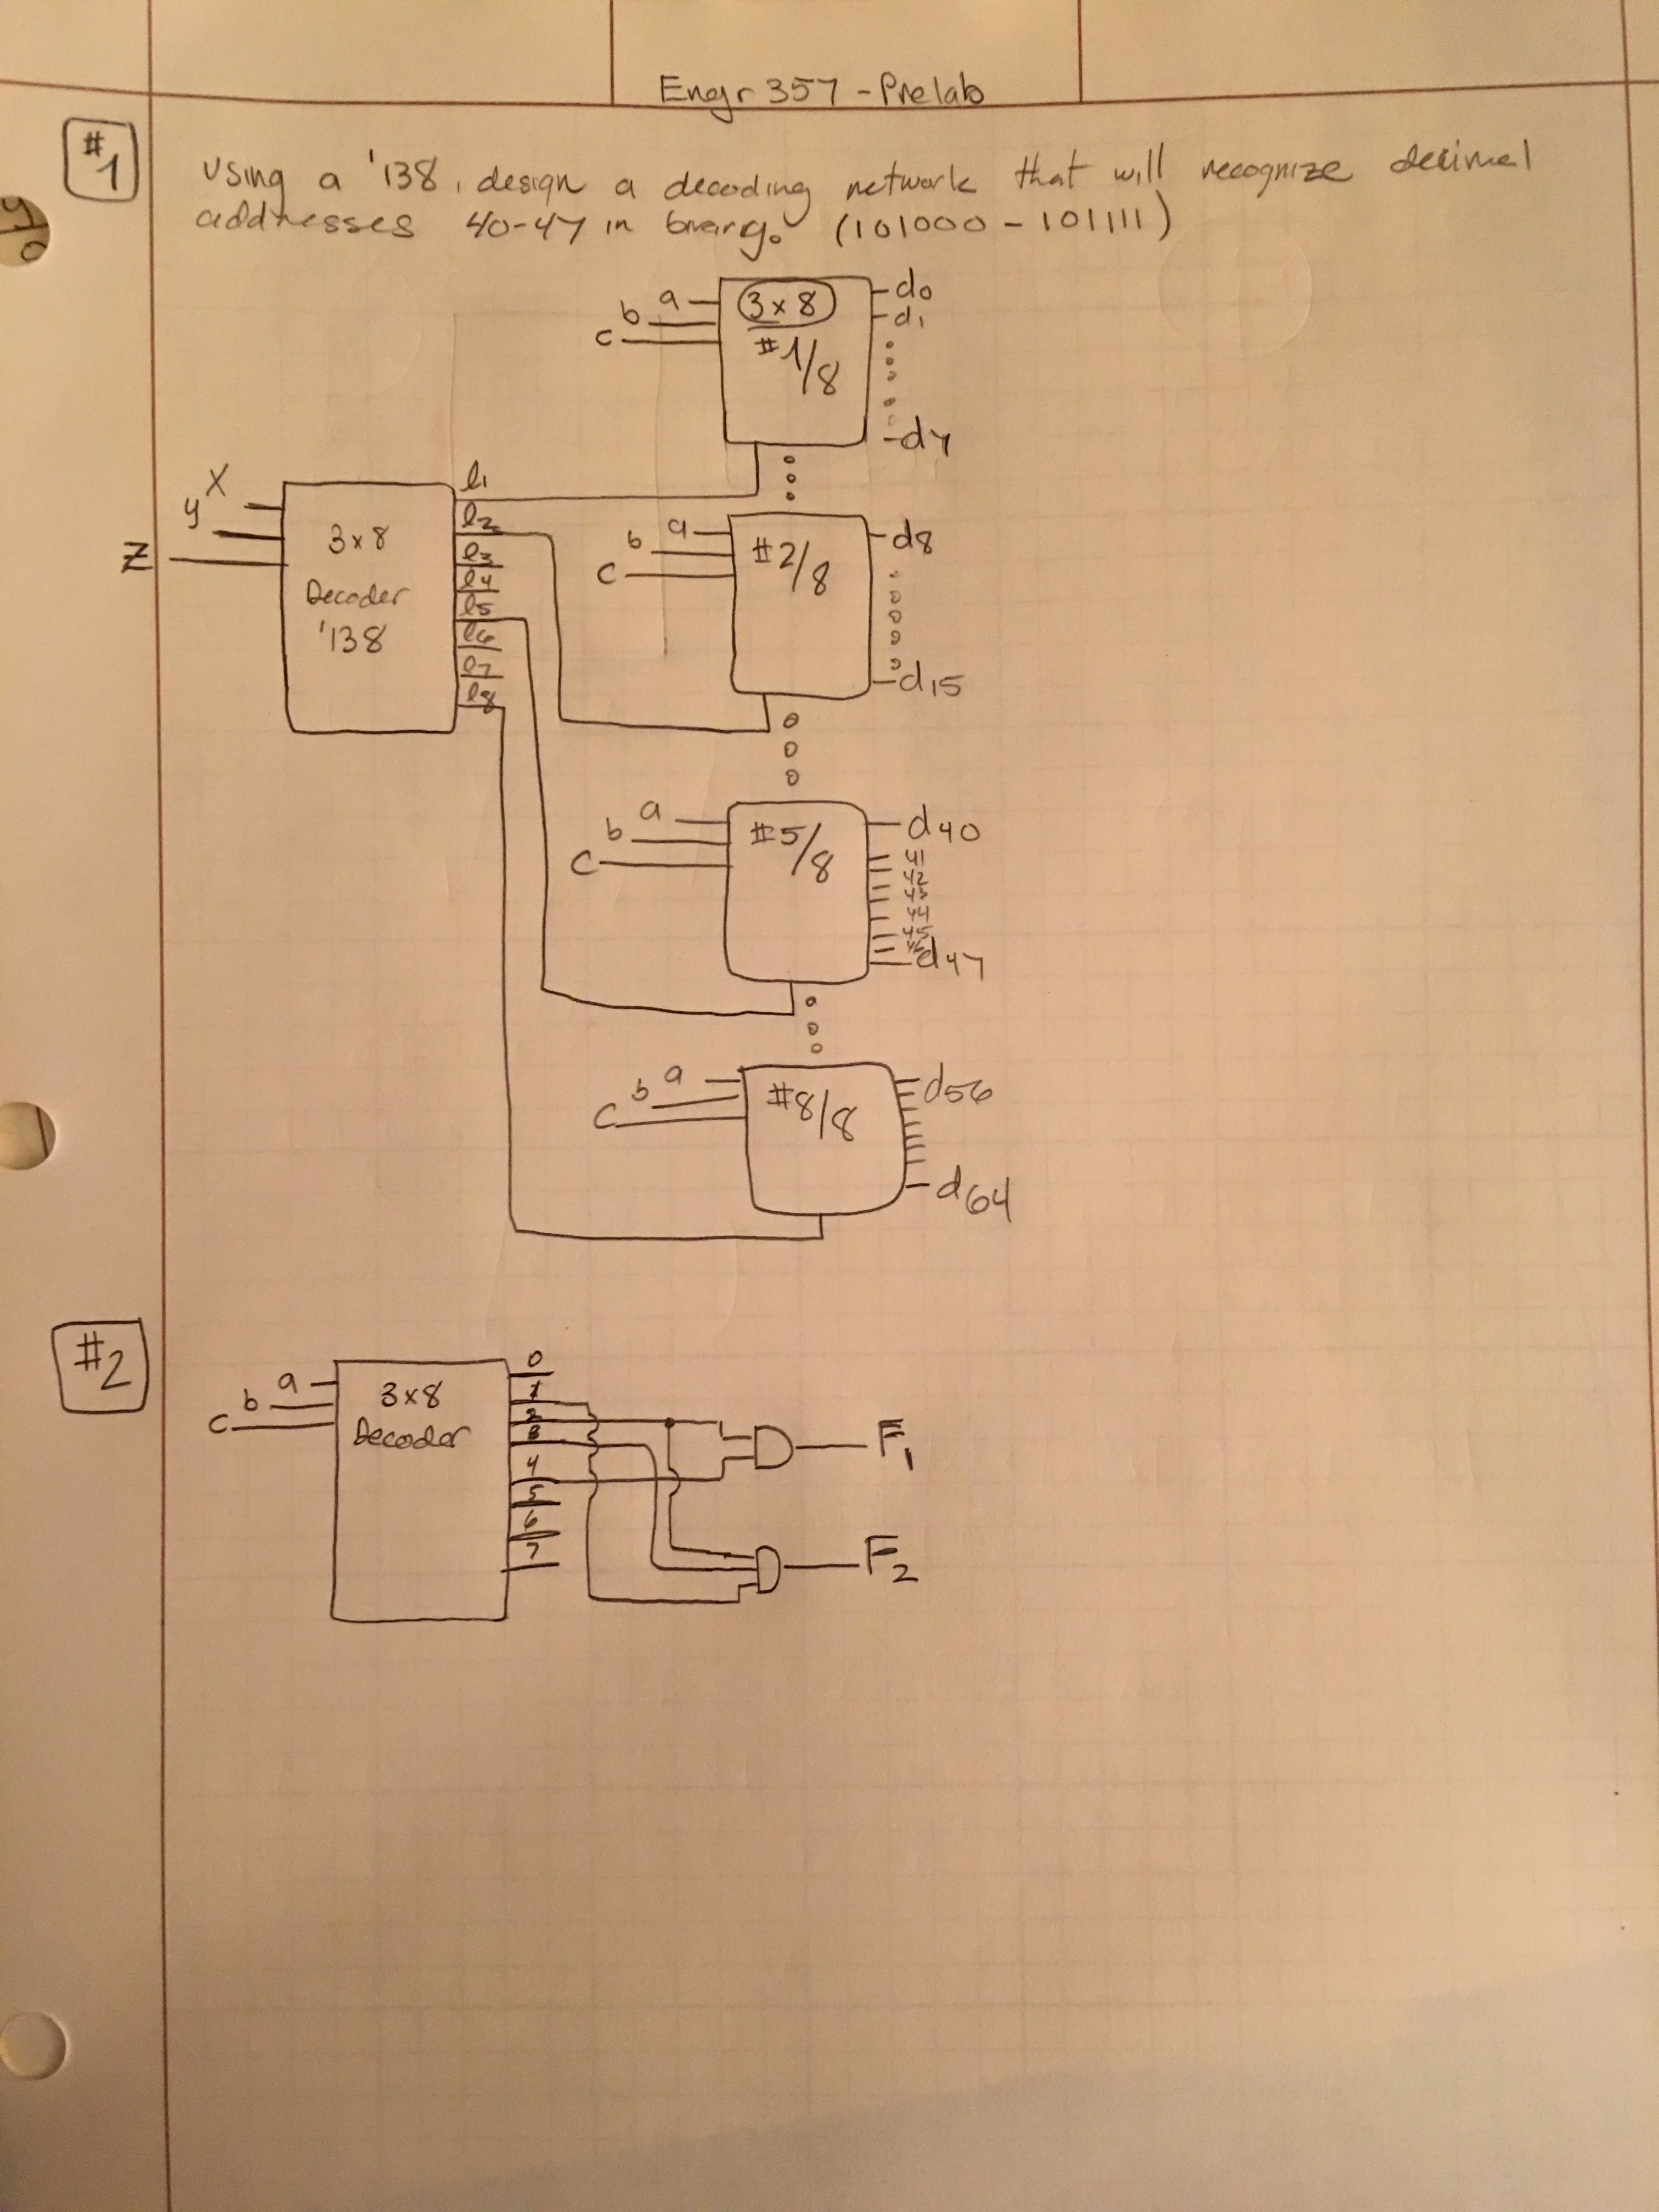 Engr 357 - Prelab
#1
Using a '138, design a decoding network that will recognize decimal
addresses 40-47 in binary. (101000 - 101111)
a
b
c
3x8
#1/8
d0
d1
d7
x
y
z
3x8
Decoder
'138
l1
l2
l3
l4
l5
l6
l7
l8
a
b
c
#2/8
d8
d15
a
b
c
#5/8
d40
41
42
43
44
45
46
d47
a
b
c
#8/8
d56
d64
#2
a
b
c
3x8
Decoder
0
1
2
3
4
5
6
7
F1
F2